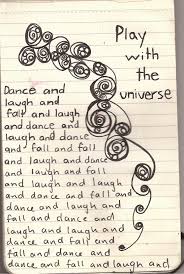 Play
with
the
universe
Dance and
laugh and
fall and laugh
and dance and
laugh and dance
and fall and fall
and laugh and dance
and laugh and fall
and laugh and laugh
and dance and fall and
dance and laugh and
fall and dance and
laugh and laugh and
dance and fall and
fall and dance and
dance and fall and laugh and